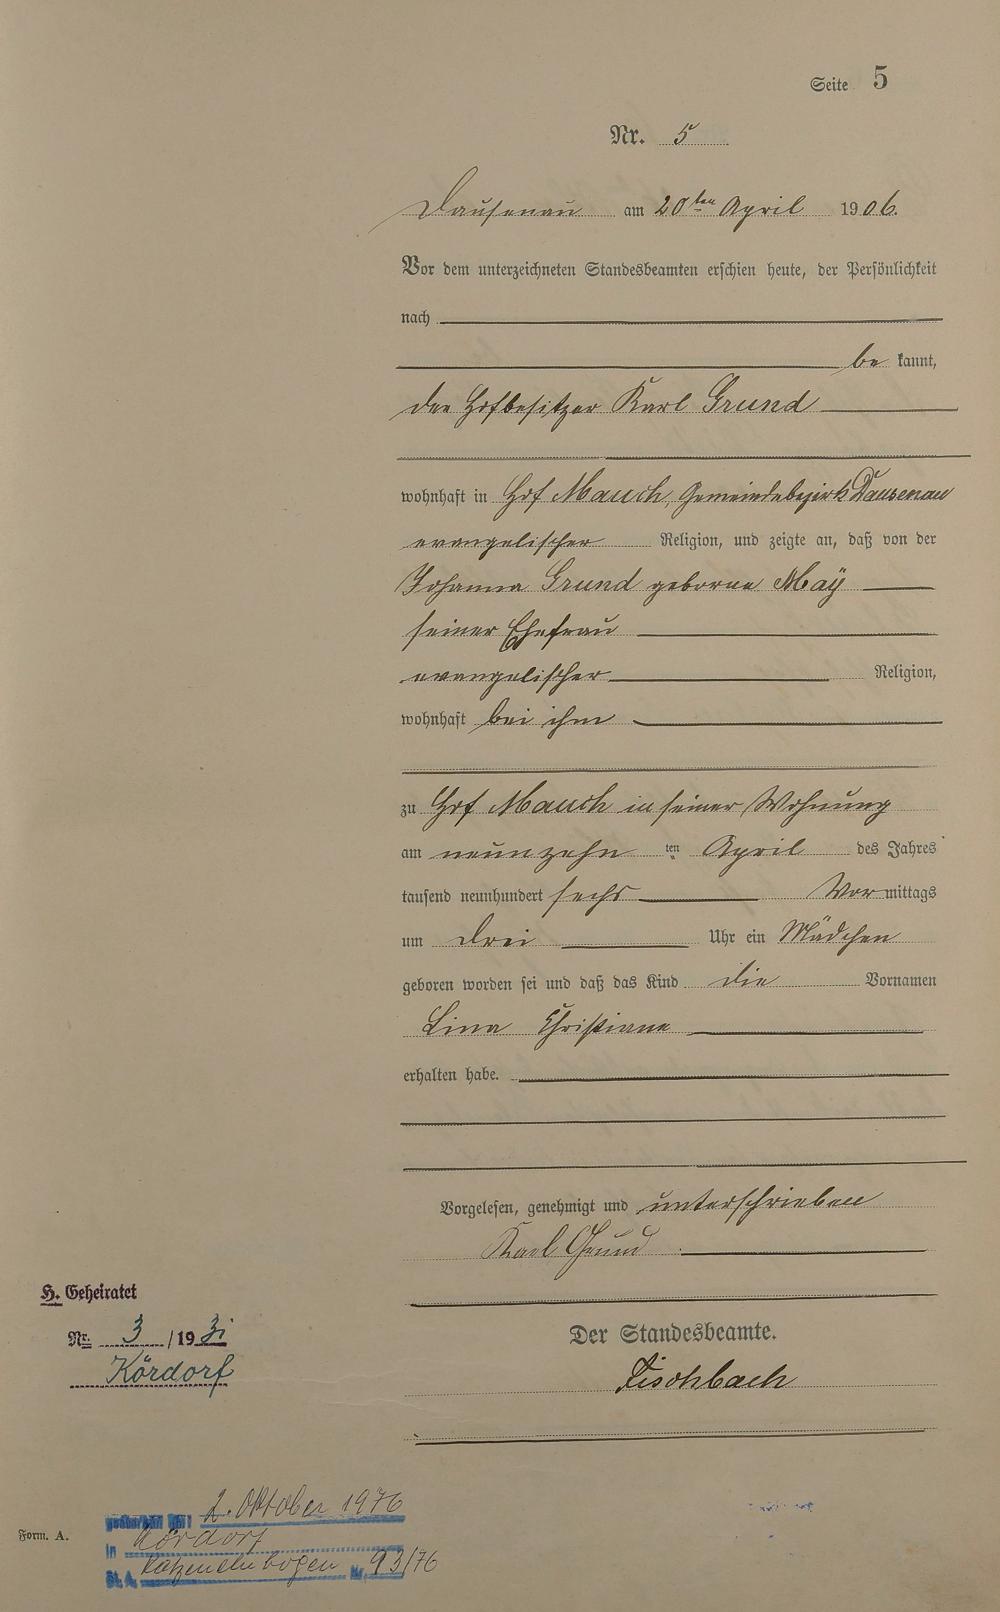 Seite 5
Nr. 5
Dausenau am 20ten April 1906.
Vor dem unterzeichneten Standesbeamten erschien heute, der Persönlichkeit
nach
be kannt,
der Hofbesitzer Karl Grund
wohnhaft in Hof Mauch, Gemeindebezirk Dausenau
evangelischer Religion, und zeigte an, daß von der
Johanna Grund geborne Maÿ
seiner Ehefrau
evangelischer Religion,
wohnhaft bei ihm
zu Hof Mauch in seiner Wohnung
am neunzehn ten April des Jahres
tausend neunhundert sechs Vormittags
um drei Uhr ein Mädchen
geboren worden sei und daß das Kind die Vornamen
Lina Christiane
erhalten habe.
Vorgelesen, genehmigt und unterschrieben
Karl Grund
Der Standesbeamte.
Fischbach
H. Geheiratet
Nr. 3 /1931
Kördorf
gestorben am: 2. Oktober 1976
in Kördorf
St. A. Katzenelnbogen Nr. 93/76
Form. A.